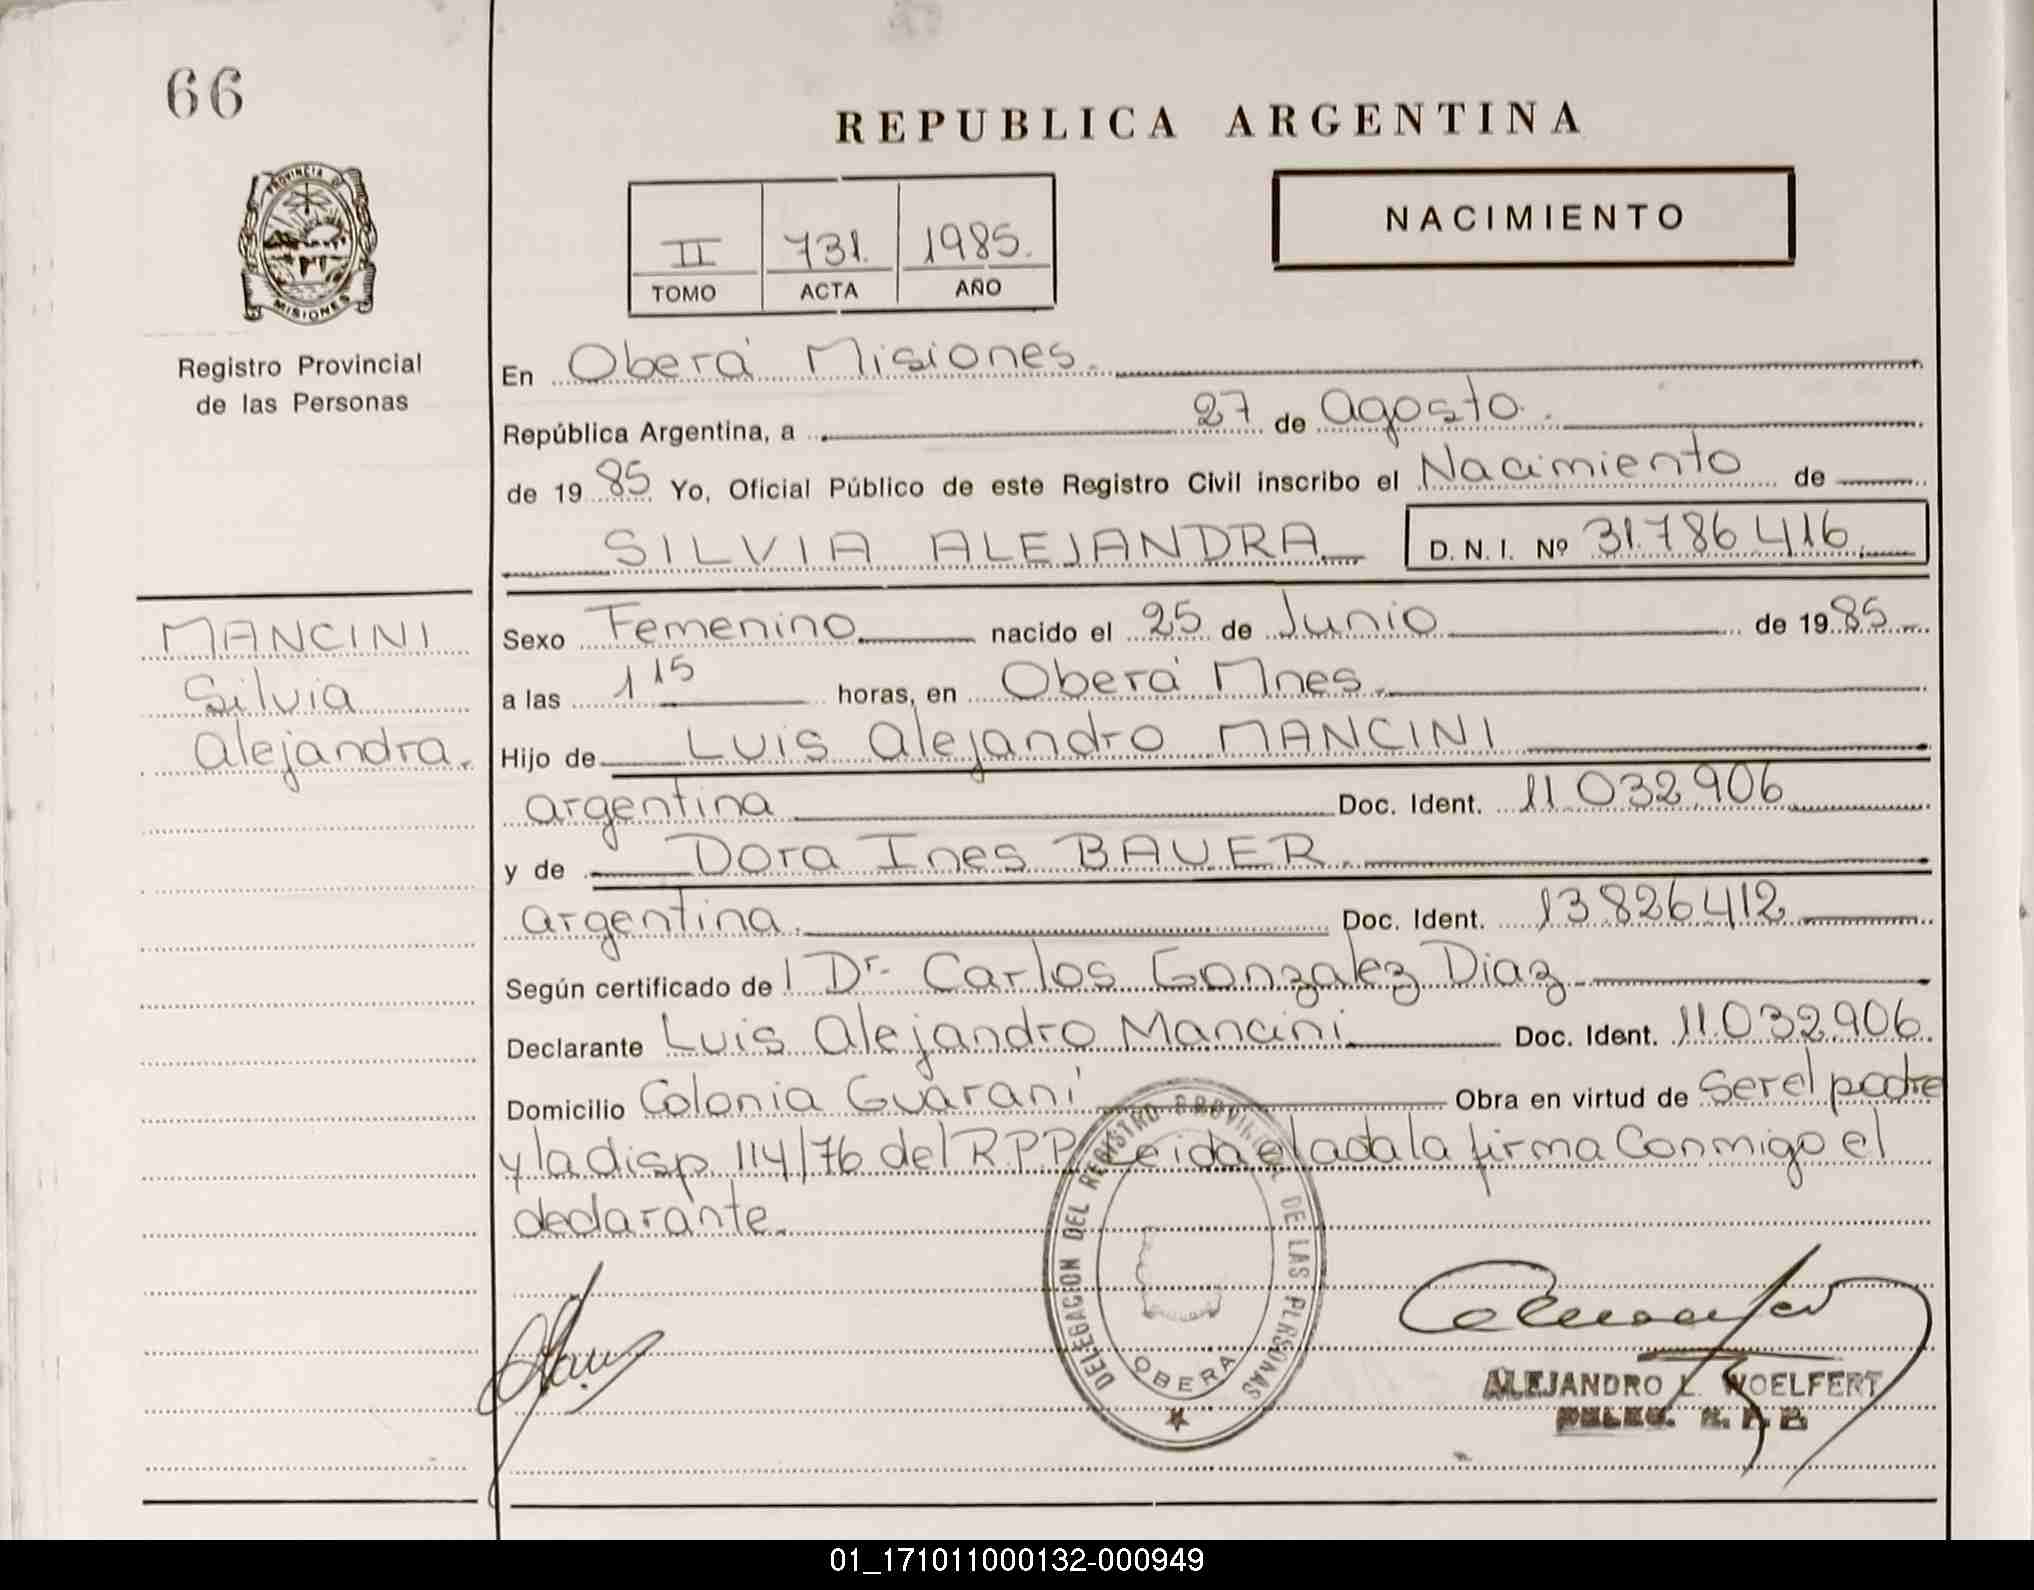 66
PROVINCIA DE
MISIONES
Registro Provincial
de las Personas
MANCINI
Silvia
Alejandra.
REPUBLICA ARGENTINA
II 731. 1985.
TOMO ACTA AÑO
NACIMIENTO
En Oberá Misiones.
República Argentina, a 27 de agosto.
de 19 85 Yo, Oficial Público de este Registro Civil inscribo el Nacimiento de
SILVIA ALEJANDRA D. N. I. Nº 31.786.416.
Sexo Femenino nacido el 25 de Junio de 19 85
a las 1 15 horas, en Oberá Mnes.
Hijo de Luis Alejandro MANCINI
argentina Doc. Ident. 11.032.906
y de Dora Ines BAUER.
argentina. Doc. Ident. 13.826.412
Según certificado de l Dr. Carlos Gonzalez Diaz
Declarante Luis Alejandro Mancini Doc. Ident. 11.032.906
Domicilio Colonia Guaraní Obra en virtud de ser el padre
y la disp 114/76 del R.P.P. Leida el acta la firma conmigo el
declarante.
DELEGACION DEL REGISTRO PROVINCIAL DE LAS PERSONAS
OBERA
ALEJANDRO L. WOELFERT
DELEG. R. P. P.
01_171011000132-000949